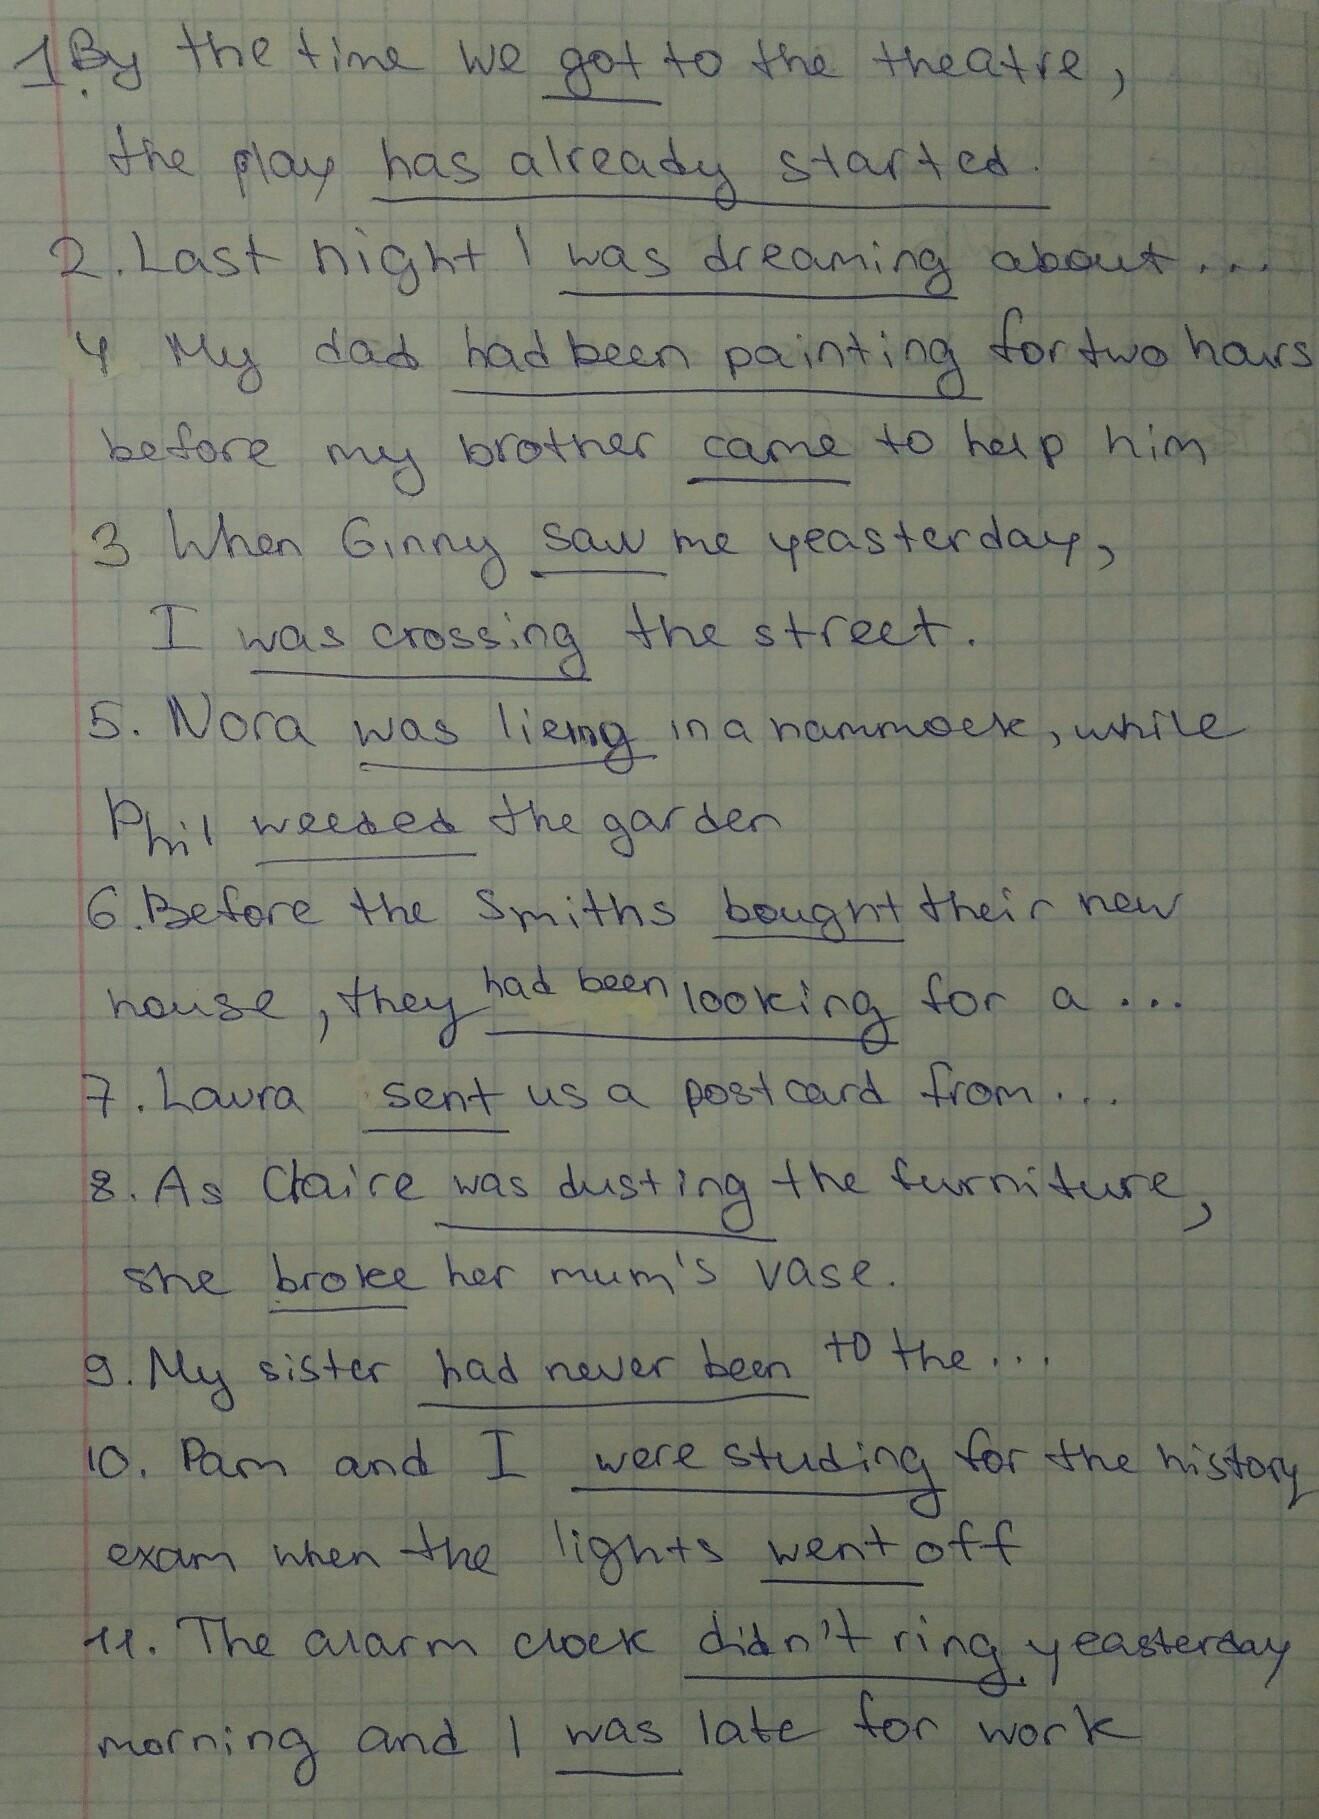 1. By the time we got to the theatre,
the play has already started.
2. Last night I was dreaming about...
4 My dad had been painting for two hours
before my brother came to help him
3 When Ginny saw me yeasterday,
I was crossing the street.
5. Nora was lieing in a hammock, while
Phil weeded the garden
6. Before the Smiths bought their new
house, they had been looking for a ...
7. Laura sent us a postcard from...
8. As Claire was dusting the furniture,
she broke her mum's vase.
9. My sister had never been to the...
10. Pam and I were studing for the history
exam when the lights went off
11. The alarm clock didn't ring yeasterday
morning and I was late for work